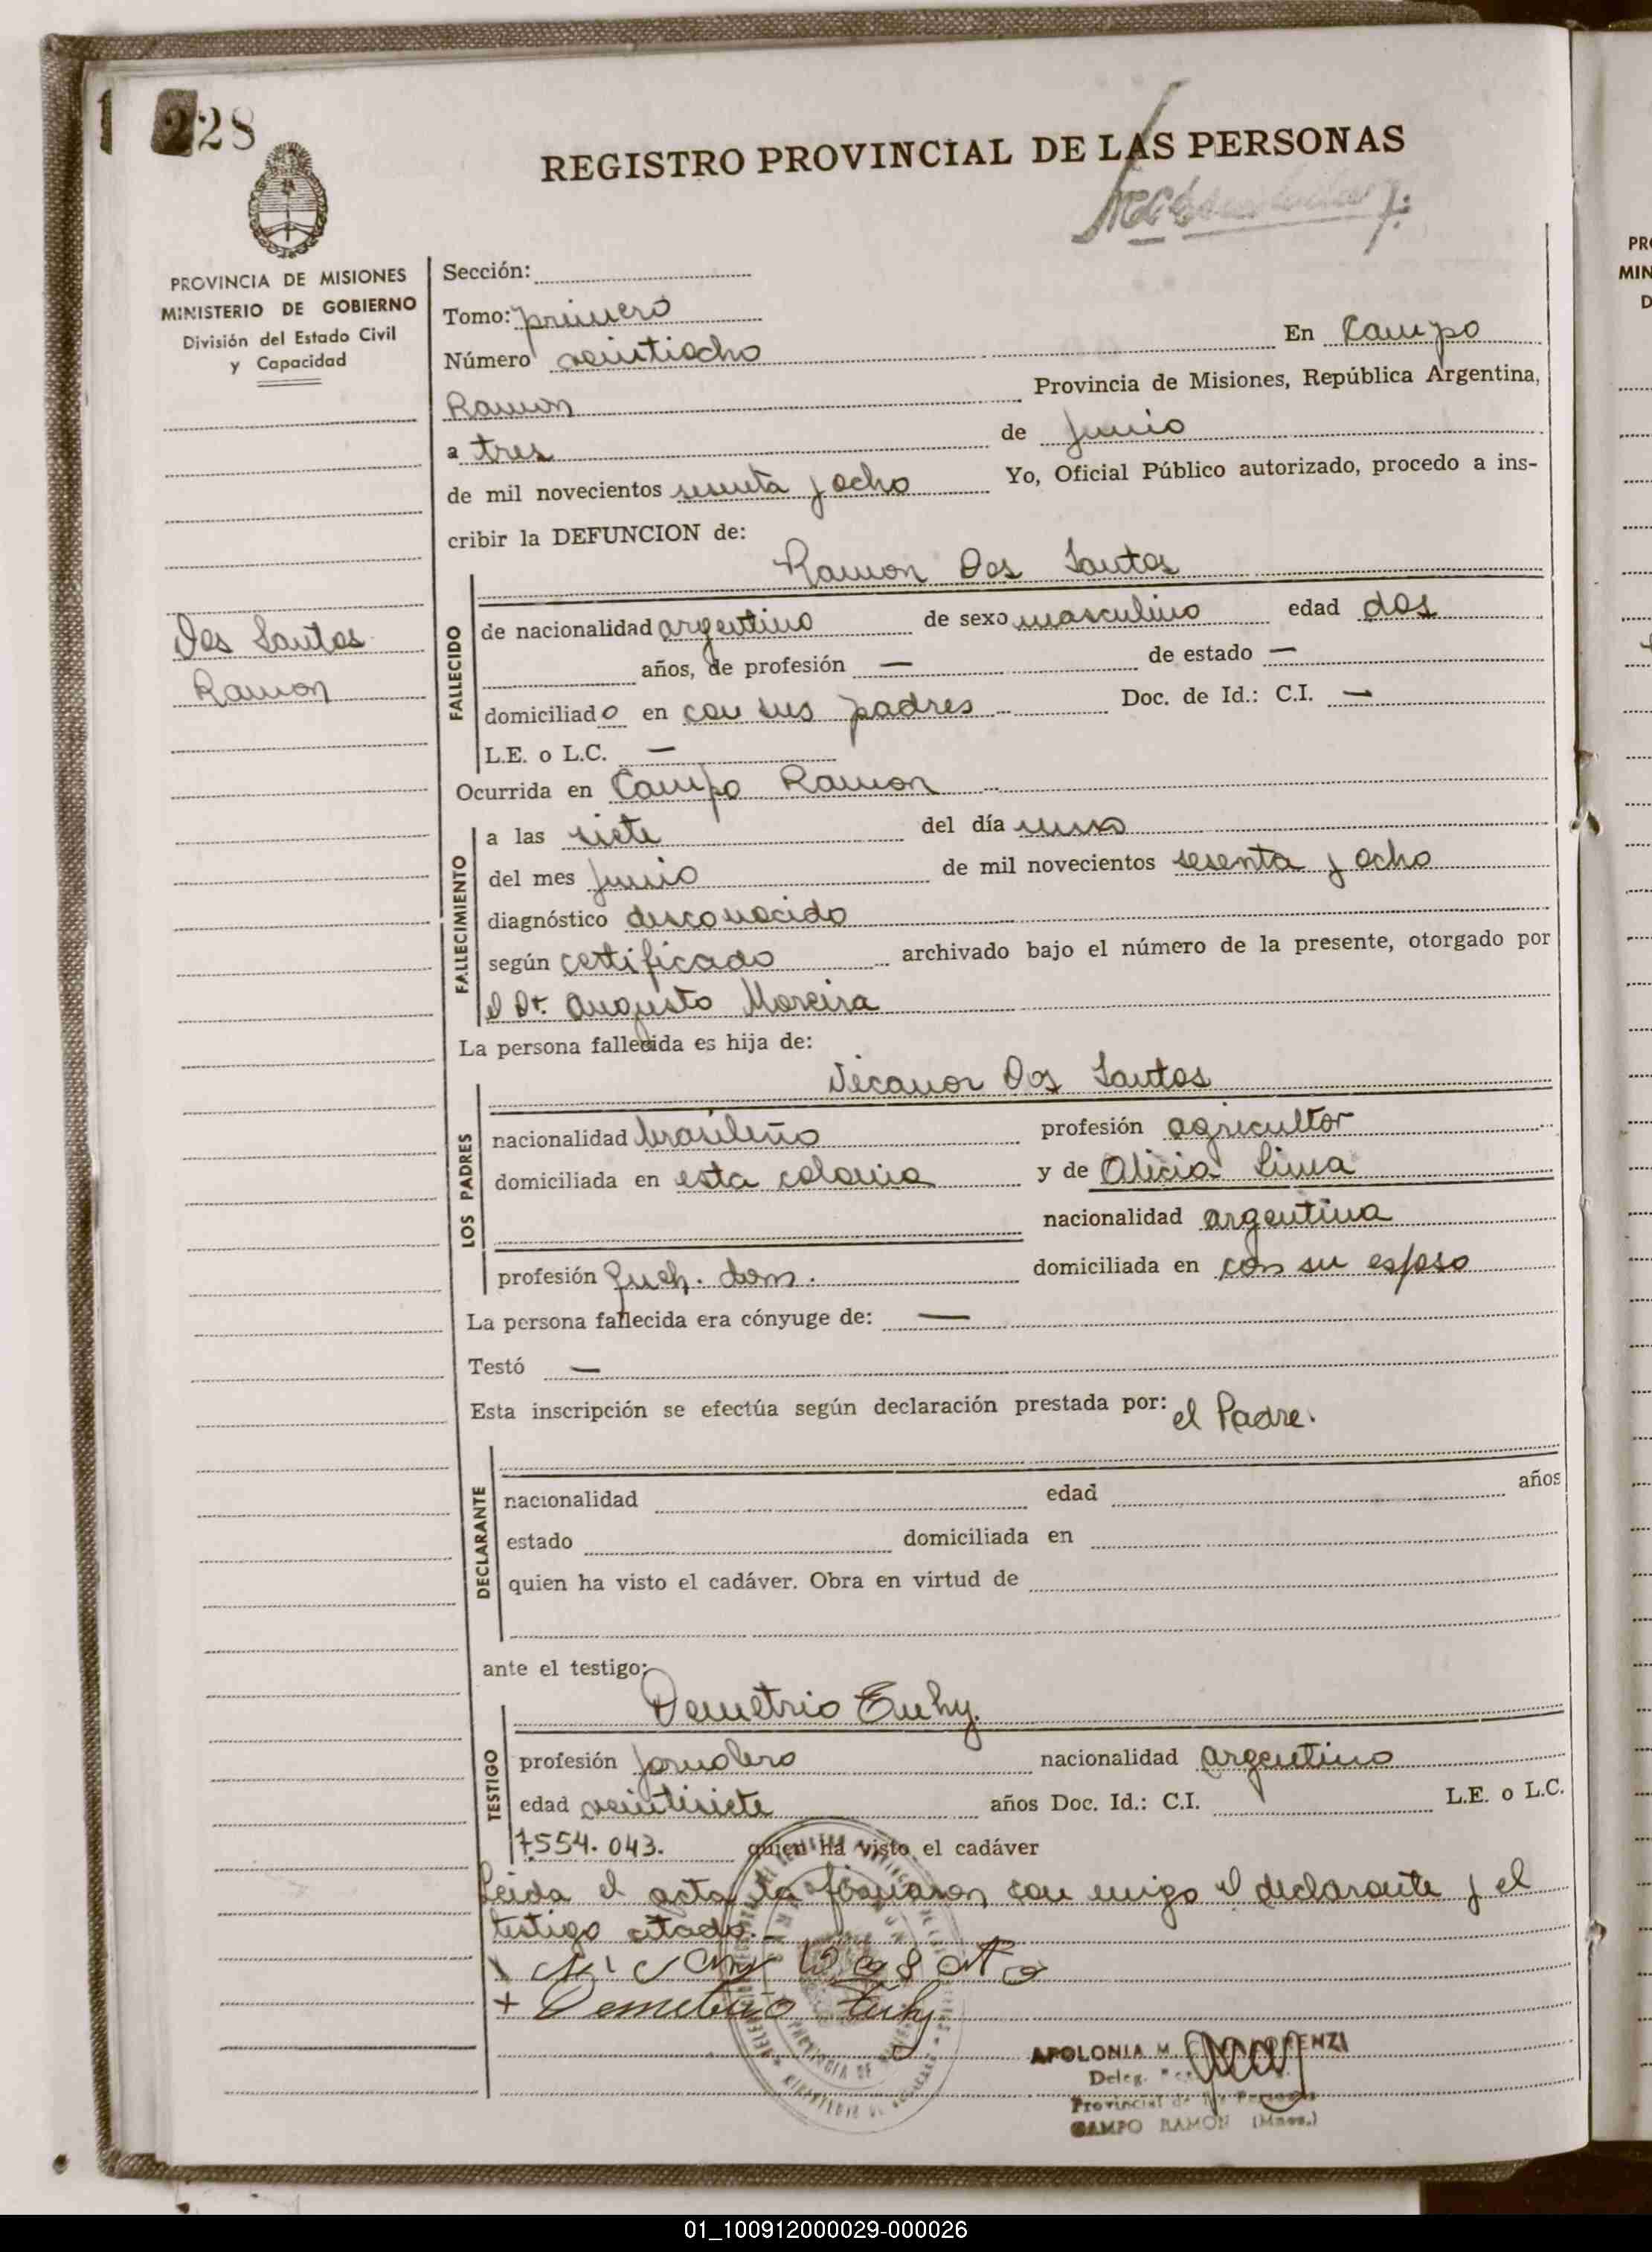 28
REGISTRO PROVINCIAL DE LAS PERSONAS
PROVINCIA DE MISIONES
MINISTERIO DE GOBIERNO
División del Estado Civil
y Capacidad
Sección:
Tomo: primero
Número veintiocho En Campo
Ramon Provincia de Misiones, República Argentina,
a tres de Junio
de mil novecientos sesenta y ocho Yo, Oficial Público autorizado, procedo a ins-
cribir la DEFUNCION de:
Ramon Dos Santos
Dos Santos
Ramon
FALLECIDO
de nacionalidad argentino de sexo masculino edad dos
años, de profesión — de estado —
domiciliado en con sus padres Doc. de Id.: C.I. —
L.E. o L.C. —
Ocurrida en Campo Ramon
FALLECIMIENTO
a las siete del día uno
del mes Junio de mil novecientos sesenta y ocho
diagnóstico desconocido
según certificado archivado bajo el número de la presente, otorgado por
el Dr. Augusto Moreira
La persona fallecida es hija de:
Nicanor Dos Santos
LOS PADRES
nacionalidad brasileño profesión agricultor
domiciliada en esta colonia y de Alicia Lima
nacionalidad argentina
profesión Queh. dom. domiciliada en con su esposo
La persona fallecida era cónyuge de: —
Testó —
Esta inscripción se efectúa según declaración prestada por: el Padre.
DECLARANTE
nacionalidad edad años
estado domiciliada en
quien ha visto el cadáver. Obra en virtud de
ante el testigo:
Demetrio Euhy.
TESTIGO
profesión jornalero nacionalidad argentino
edad veintisiete años Doc. Id.: C.I. L.E. o L.C.
7.554.043. quien ha visto el cadáver
Leida el acta la firmaron con migo el declarante y el
testigo citado.-
+ Demetrio Euhy
APOLONIA M. ENZI
Deleg.
Provincial de las Personas
CAMPO RAMON (Mnes.)
PR
MIN
D
01_100912000029-000026